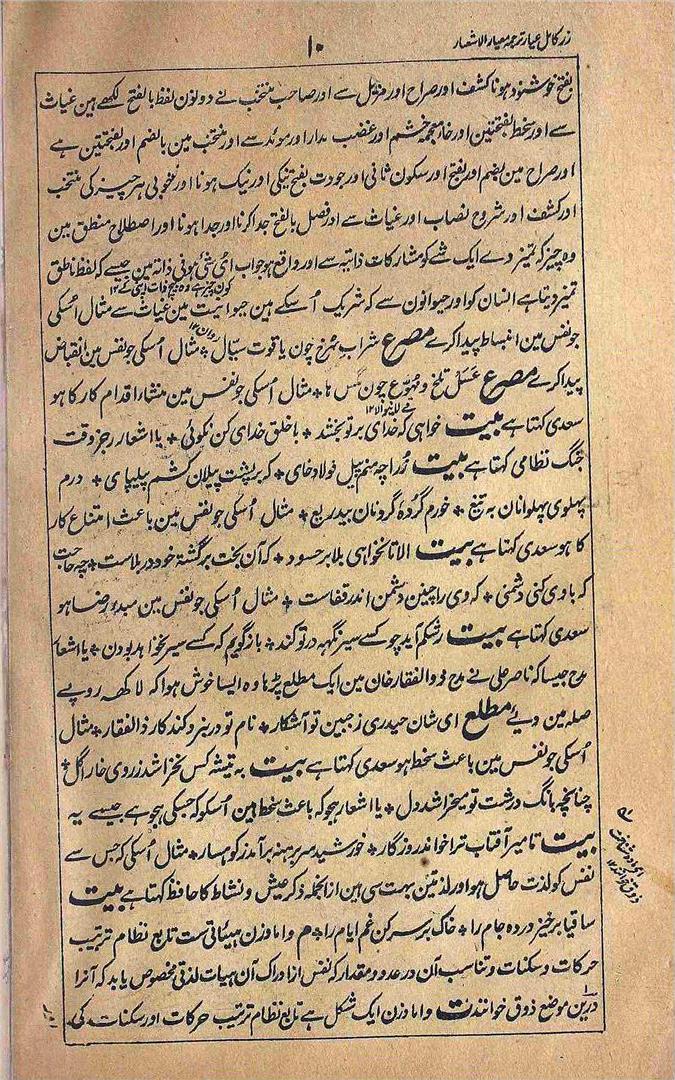 زر کامل عیار ترجمہ معیار الاشعار
۱۰
بفتح خوشنود ہونا کشف اور صراح اور مزیل سے اور صاحب منتخب نے دونون لفظ بالفتح لکھے ہین غیاث
سے اور سخط بفتحتین اور خاء معجمہ خشم اور غضب مدار اور موئد سے اور منتخب مین بالضم اور بفتحتین ہے
اور صراح مین بضم اور بفتح اور سکون ثانی اور جودت بفتح نیکی اور نیک ہونا اور خوبی ہر چیز کی منتخب
اور کشف اور شروح نصاب اور غیاث سے اور فصل بالفتح جدا کرنا اور جدا ہونا اور اصطلاح منطق مین
وہ چیز کہ تمیز دے ایک شے کو مشارکات ذاتیہ سے اور واقع ہو جواب ای شئ ہو فی ذاتہ مین جیسے کہ لفظ ناطق
تمیز دیتا ہے انسان کو اور حیوانون سے کہ شریک اُسکے ہین حیوانیت مین غیاث سے مثال اُسکی
جو نفس مین انبساط پیدا کرے مصرع شراب سُرخ چون یاقوت سیّال ٭ مثال اُسکی جو نفس مین انقباض
پیدا کرے مصرع عَسَل تلخ و مہوّع چون مگس ہا ٭ مثال اُسکی جو نفس مین منشاء اقدام کار کا ہو
سعدی کہتا ہے بیت خواہی کہ خدای بر تو بخشد ٭ با خلق خدای کن نکوئی ٭ یا اشعار رجز وقت
جنگ نظامی کہتا ہے بیت زراچہ منم پیل فولاد خای ٭ کہ بر پشت پیلان کشم پیلپای ٭ درم
پہلوی پہلوانان بہ تیغ ٭ خورم گردۂ گردنان بیدریغ ٭ مثال اُسکی جو نفس مین باعث امتناع کار
کا ہو سعدی کہتا ہے بیت الا تا نخواہی بلا بر حسود ٭ کہ آن بخت برگشتہ خود در بلاست ٭ چہ حاجت
کہ با وی کنی دشمنی ٭ کہ وی را چنین دشمن اندر قفاست ٭ مثال اُسکی جو نفس مین مبدء رضا ہو
سعدی کہتا ہے بیت رشکم آید چو کسے سیر نگہ در تو کند ٭ باز گویم کہ کسے سیر نخواہد بودن ٭ یا اشعار
مدح جیسا کہ ناصر علی نے مدح ذوالفقار خان مین ایک مطلع پڑھا وہ ایسا خوش ہوا کہ لاکھ روپے
صلہ مین دیئے مطلع ای شان حیدری ز جبین تو آشکار ٭ نام تو در نبرد کند کار ذالفقار ٭ مثال
اُسکی جو نفس مین باعث سخط ہو سعدی کہتا ہے بیت بہ تیشہ کس نخراشد ز روی خارا گل ٭
چنانچہ بانگ درشت تو میخراشد دل ٭ یا اشعار ہجو کہ باعث سخط ہین اُسکو کہ جسکی ہجو ہے جیسے یہ
بیت تا میر آفتاب ترا خواند روزگار ٭ خورشید سر برہنہ برآمد ز کوہسار ٭ مثال اُسکی کہ جس سے
نفس کو لذت حاصل ہو اور لذتین بہت سی ہین ازانجملہ ذکر عیش و نشاط کا حافظ کہتا ہے بیت
ساقیا برخیز در دہ جام را ٭ خاک بر سر کن غم ایام را ٭ م و اما وزن ہیئاتی ست تابع نظام ترتیب
حرکات و سکنات و تناسب آن در عدد و مقدار کہ نفس از ادراک آن ہیات لذتی مخصوص یابد کہ آنرا
درین موضع ذوق خوانند ت و اما وزن ایک شکل ہے تابع نظام ترتیب حرکات اور سکنات کی